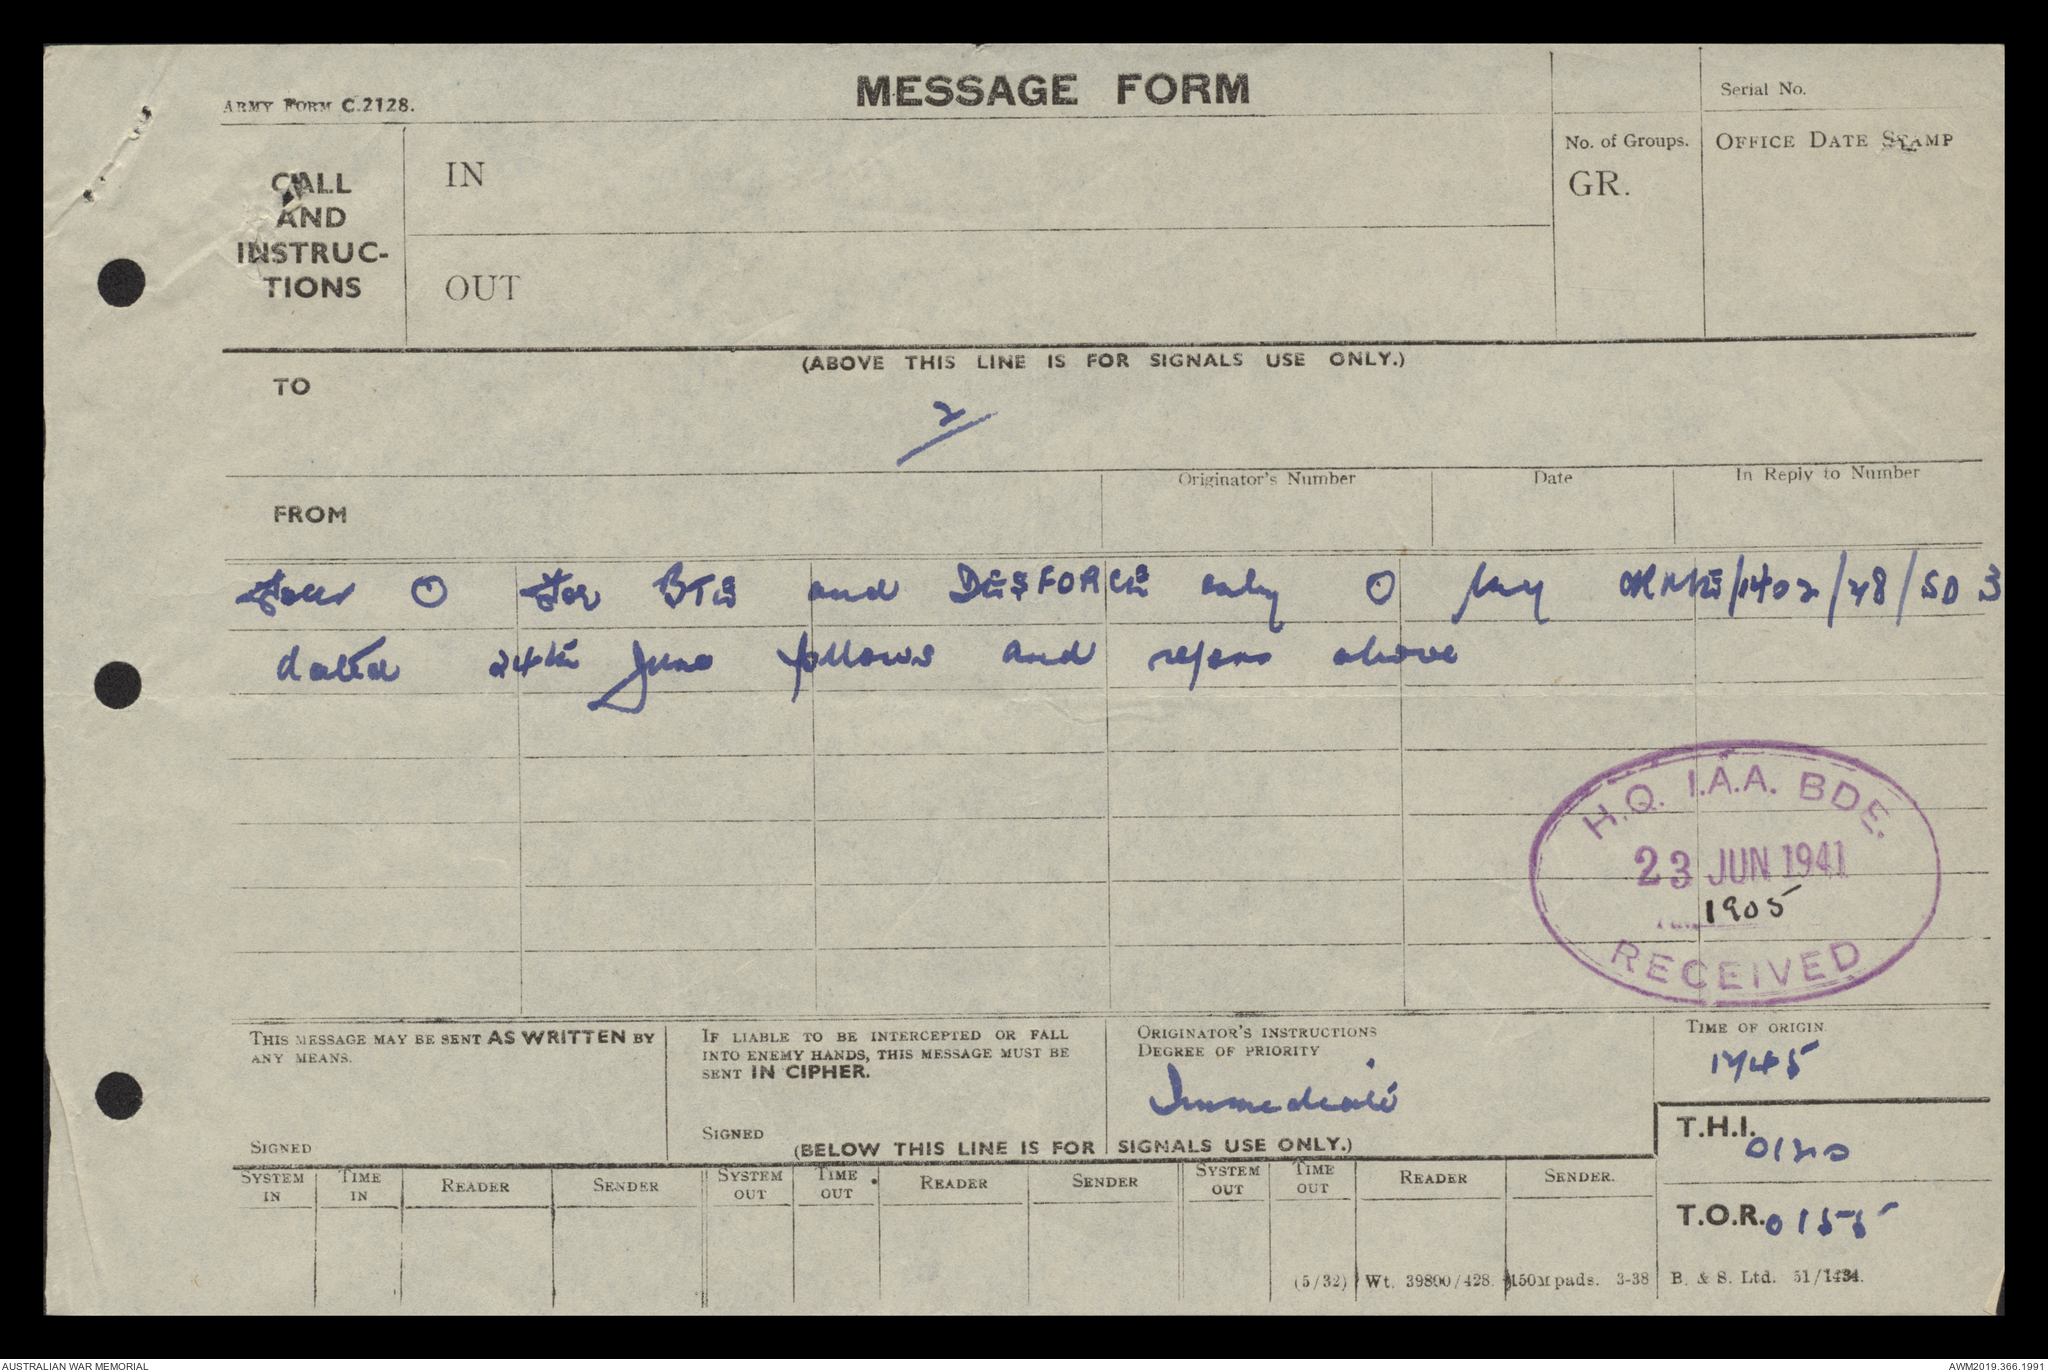 MESSAGE FORM
ARMY FORM C.2128.
Serial No.
CALL
AND
INSTRUC-
TIONS
IN
OUT
No. of Groups.
GR.
OFFICE DATE STAMP
(ABOVE THIS LINE IS FOR SIGNALS USE ONLY.)
TO
2
FROM
Originator's Number
Date
In Reply to Number
O For BTE and DESFORCE only O my /1402/48/SD 3
dated 24th June follows and refers above
H.Q. 1.A.A. BDE.
23 JUN 1941
1905
RECEIVED
THIS MESSAGE MAY BE SENT AS WRITTEN BY
ANY MEANS.
SIGNED
IF LIABLE TO BE INTERCEPTED OR FALL
INTO ENEMY HANDS, THIS MESSAGE MUST BE
SENT IN CIPHER.
SIGNED
ORIGINATOR'S INSTRUCTIONS
DEGREE OF PRIORITY
Immediate
TIME OF ORIGIN
1745
(BELOW THIS LINE IS FOR SIGNALS USE ONLY.)
T.H.I.
T.O.R. 0155
SYSTEM IN
TIME IN
READER
SENDER
SYSTEM OUT
TIME OUT
READER
SENDER
SYSTEM OUT
TIME OUT
READER
SENDER.
(5/32) Wt. 39800/428. 150M pads. 3-38 B. & S. Ltd. 51/1434.
AUSTRALIAN WAR MEMORIAL
AWM2019.366.1991